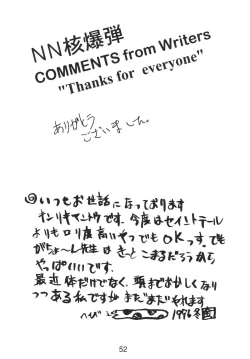 NN核爆弾
COMMENTS from Writers
"Thanks for everyone"
ありがとう
ございました。
◎いつもお世話になっております
オンリキマントウです。今度はセイントテール
よりもロリ度高いやつでもOKっす。でも
がちょ〜ん先生はきっとこまるだろうから
やっぱいいです。
最近体だけでなく、頭までおかしくなり
つつある私ですがまだまだそれます
1996冬
52